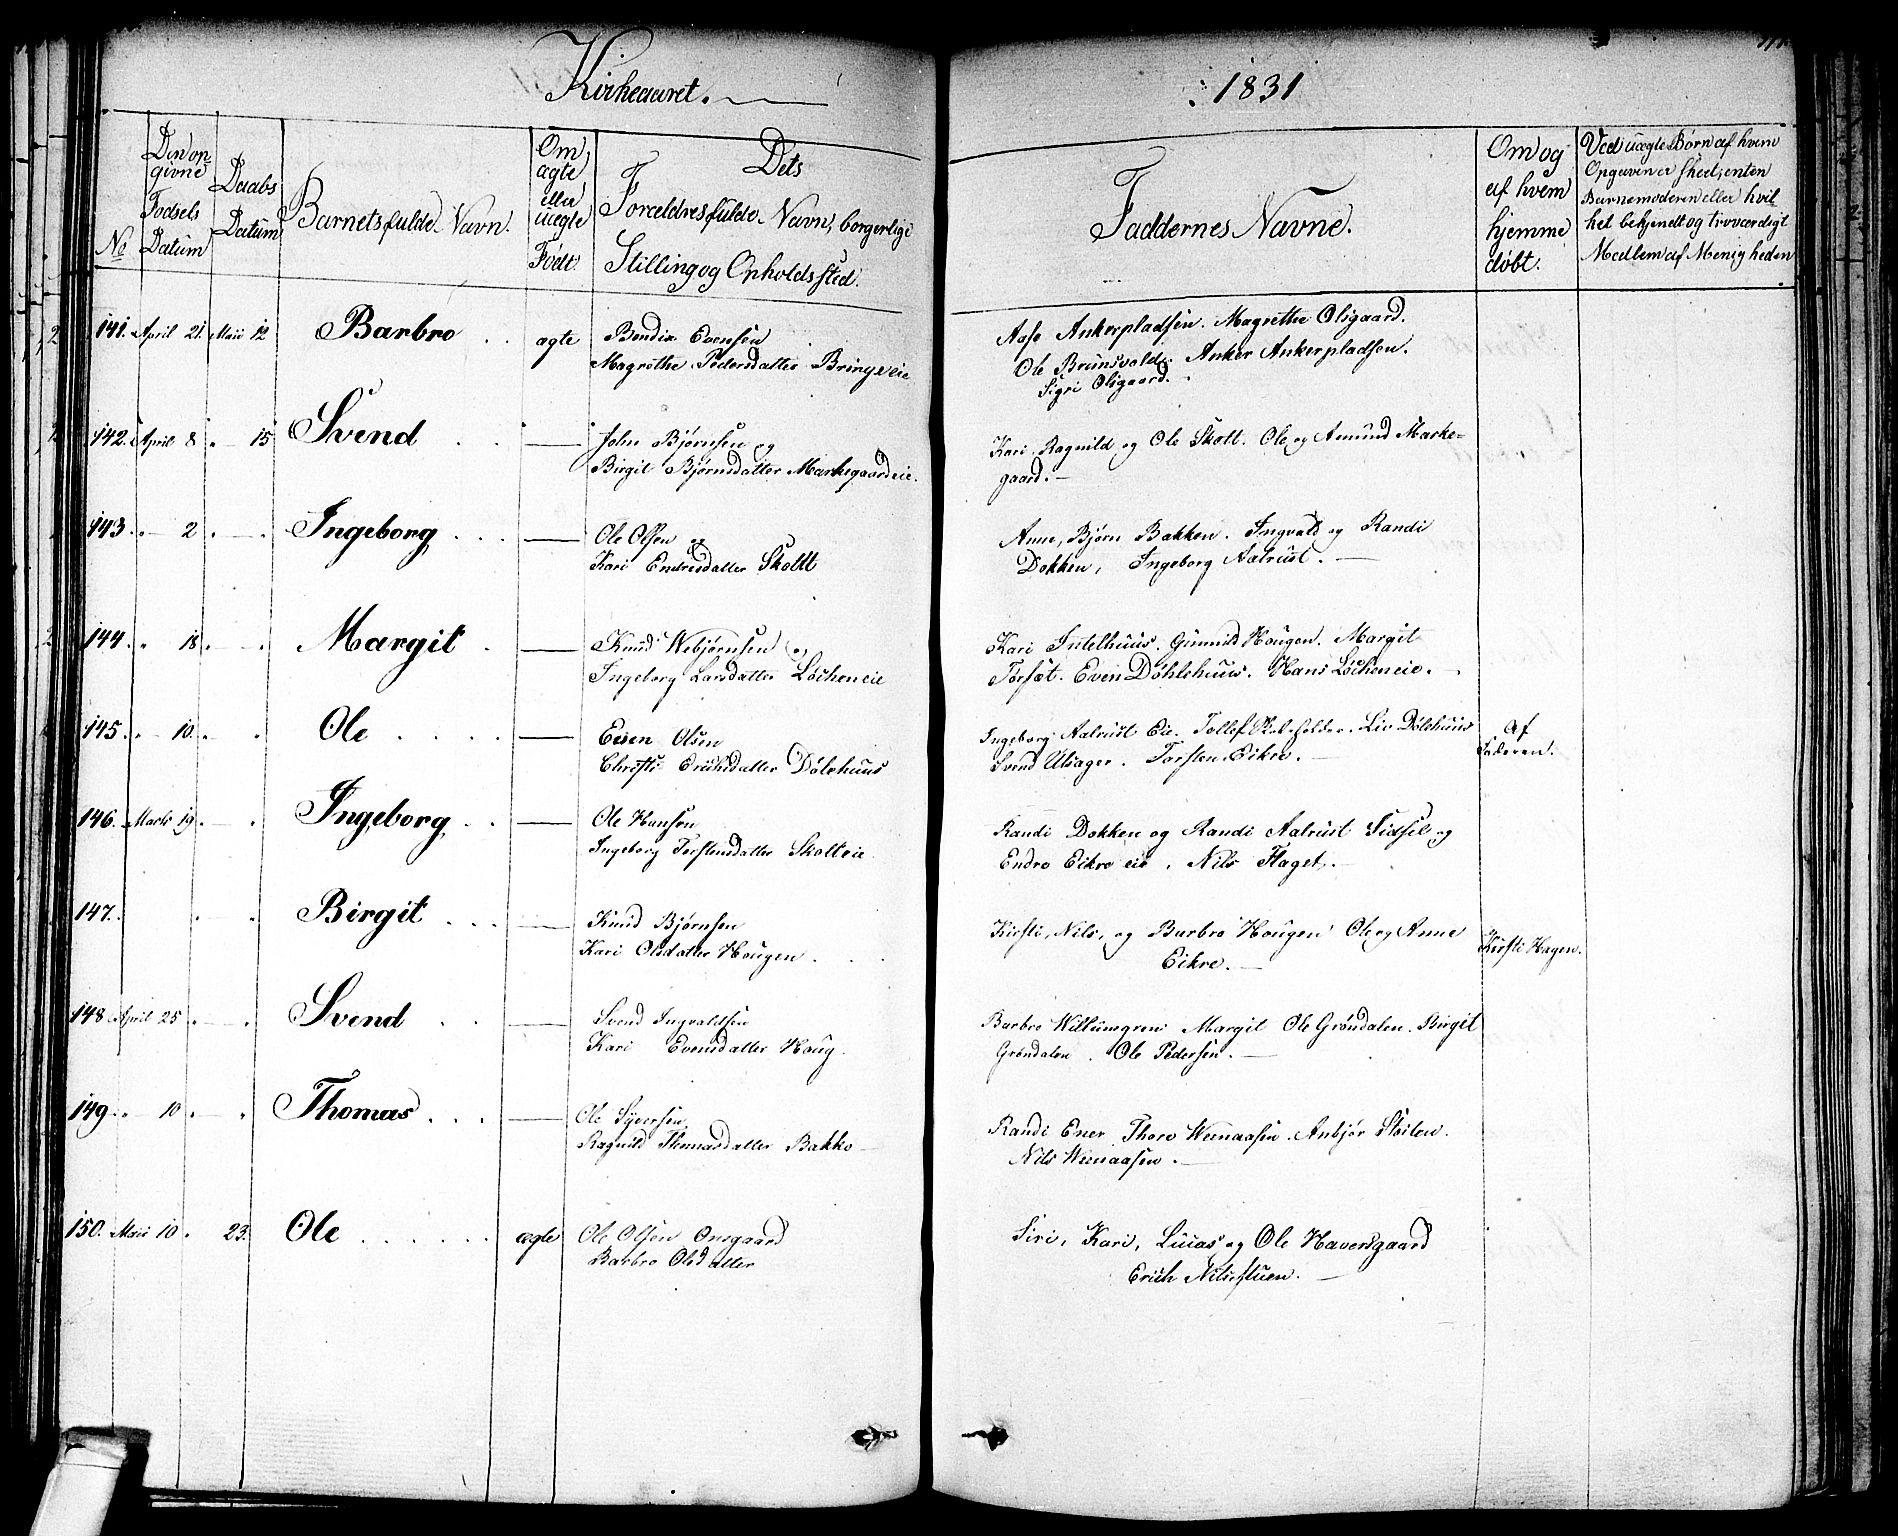 Kirkeaaret. 1831
No
Den op-
givne
Fødsels
Datum
Daabs
Datum
Barnets fulde Navn.
Om
ægte
eller
uægte
Født.
Dets
Forældres fulde Navn, borgerlige
Stilling og Opholdssted.
Faddernes Navne.
Om og
af hvem
hjemme
døbt.
Ved uægte Børn af hvem
Opgaven er skeed, enten
Barnemoderen eller hvil
ket bekjendt og troværdigt
Medlem af Menigheden
141. April 21. Maii 12 Barbro . . ægte
Bendix Evensen
Magrethe Pedersdatter Bringeeie
Aase Ankerpladsen. Magrethe Olsgaard.
Ole Brunsvold. Anker Ankerpladsen.
Sigri Olsgaard.
142. April 8 „ — 15 Svend . . —
John Bjørnsen og
Birgit Bjørnsdatter Markegaardeie.
Kari Ragnild og Ole Skott. Ole og Amund Marke=
gaard. —
143 „ — 2 „ — „ Ingeborg . . . —
Ole Olsen og
Kari Endresdatter Skott
Anne, Bjørn Bakken. Ingvald og Randi
Dokken, Ingeborg Aalrust. —
144. „ 18 „ — „ Margit . —
Knud Webjørnsen og
Ingeborg Larsdatter Løckeneie
Kari Intelhuus. Gunnild Hougen. Margit
Torsæt. Even Døhlehuus. Hans Løckeneie. —
145. „ — 10. „ — „ Ole . . . . . —
Even Olsen
Christi Erichsdatter Dølehuus
Ingeborg Aalrust Eie. Tollef . Liv Dølehuus
Svend Ulsager. Torsten Eikre. —
Af
Faderen.
146. Marts 19 „ — „ Ingeborg . . —
Ole Hansen
Ingeborg Torstensdatter Skotteie
Randi Dokken og Randi Aalrust Sidsel og
Endre Eikre eie. Nils Haget. —
147. „ — „ Birgit . . . —
Knud Bjørnsen
Kari Olsdatter Hougen . . .
Kirsti, Nils, og Barbro Hougen Ole og Anne
Eikre. —
Kirsti Hagen.
148 April 25 „ — „ Svend . . —
Svend Ingvaldsen
Kari Evensdatter Houg.
Barbro Willumgren Margit Ole Grøndalen. Birgit
Grøndalen. Ole Pedersen. —
149. „ — 10 „ — „ Thomas . . . —
Ole Syversen
Ragnild Thomasdatter Bakke —
Randi Ener Thore Weenaasen. Anbjør Støilen.
Nils Weenaasen. —
150. Maii 10 „ 23. Ole . . . . . . ægte
Ole Olsen Onsgaard
Barbro Olsdatter
Siri, Kari, Lucas og Ole Haversgaard
Erich Nilsestuen. —